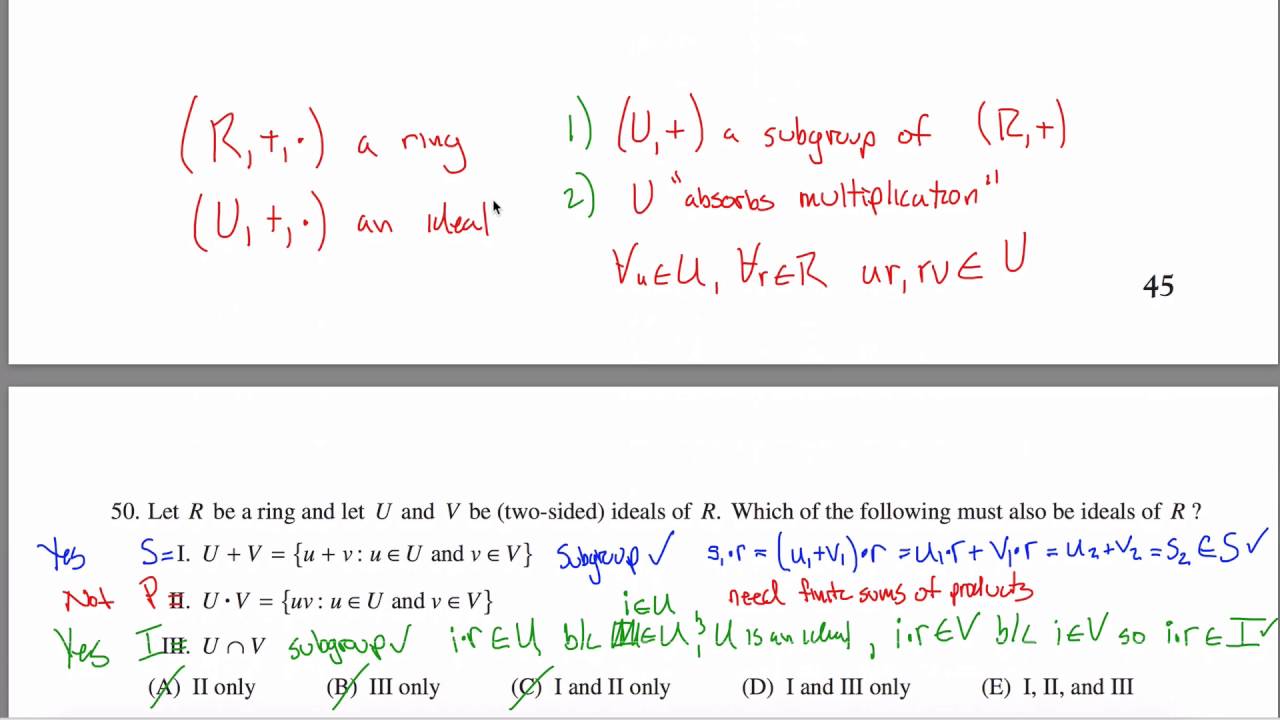 (R, +, ·) a ring
(U, +, ·) an ideal
1) (U, +) a subgroup of (R, +)
2) U "absorbs multiplication"
∀u∈U, ∀r∈R ur, ru ∈ U
45
50. Let R be a ring and let U and V be (two-sided) ideals of R. Which of the following must also be ideals of R ?
Yes S= I. U + V = {u + v : u ∈ U and v ∈ V} Subgroup ✓ s₁·r = (u₁+v₁)·r = u₁·r + v₁·r = u₂+v₂ = s₂ ∈ S ✓
Not P = II. U · V = {uv : u ∈ U and v ∈ V} need finite sums of products
i∈U
Yes I= III. U ∩ V subgroup ✓ i·r ∈ U b/c ∈ U, & U is an ideal, i·r ∈ V b/c i∈V so i·r ∈ I ✓
(A) II only (B) III only (C) I and II only (D) I and III only (E) I, II, and III